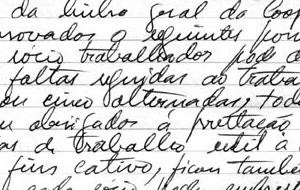 da linha geral da Coo
rovados o seguintes pon
sócio trabalhador pode d
faltas seguidas ao traba
ou cinco alternadas, tod
obrigados à prestação
as de trabalho util à
fins cativo, ficam també
cada sócio pode